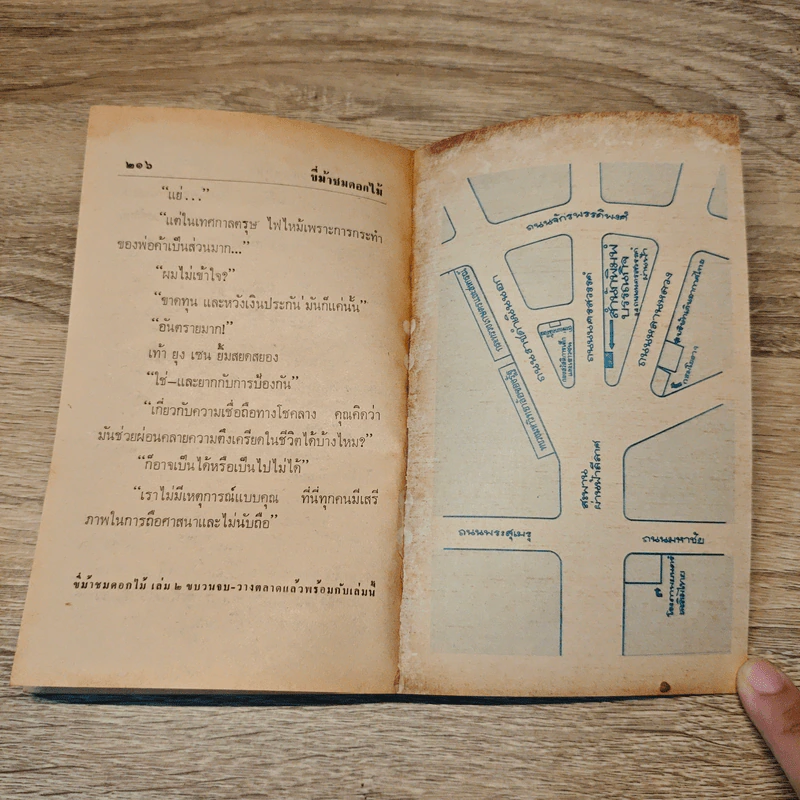 ๒๑๖
ขี่ม้าชมดอกไม้
“แย่...”
“แต่ในเทศกาลตรุษ ไฟไหม้เพราะการกระทำ
ของพ่อค้าเป็นส่วนมาก...”
“ผมไม่เข้าใจ?”
“ขาดทุน และหวังเงินประกัน มันก็แค่นั้น”
“อันตรายมาก!”
เท้า ยุง เซน ยิ้มสยดสยอง
“ใช่–และยากกับการป้องกัน”
“เกี่ยวกับความเชื่อถือทางโชคลาง คุณคิดว่า
มันช่วยผ่อนคลายความตึงเครียดในชีวิตได้บ้างไหม?”
“ก็อาจเป็นได้หรือเป็นไปไม่ได้”
“เราไม่มีเหตุการณ์แบบคุณ ที่นี่ทุกคนมีเสรี
ภาพในการถือศาสนาและไม่นับถือ”
ขี่ม้าชมดอกไม้ เล่ม ๒ ขบวนจบ-วางตลาดแล้วพร้อมกับเล่มนี้
ถนนจักรพรรดิพงศ์
ถนนราชดำเนินนอก
ถนนนครสวรรค์
สำนักพิมพ์
บรรณกิจ
ถนนหลานหลวง
สะพาน
ผ่านฟ้าลีลาศ
ถนนพระสุเมรุ
ถนนมหาชัย